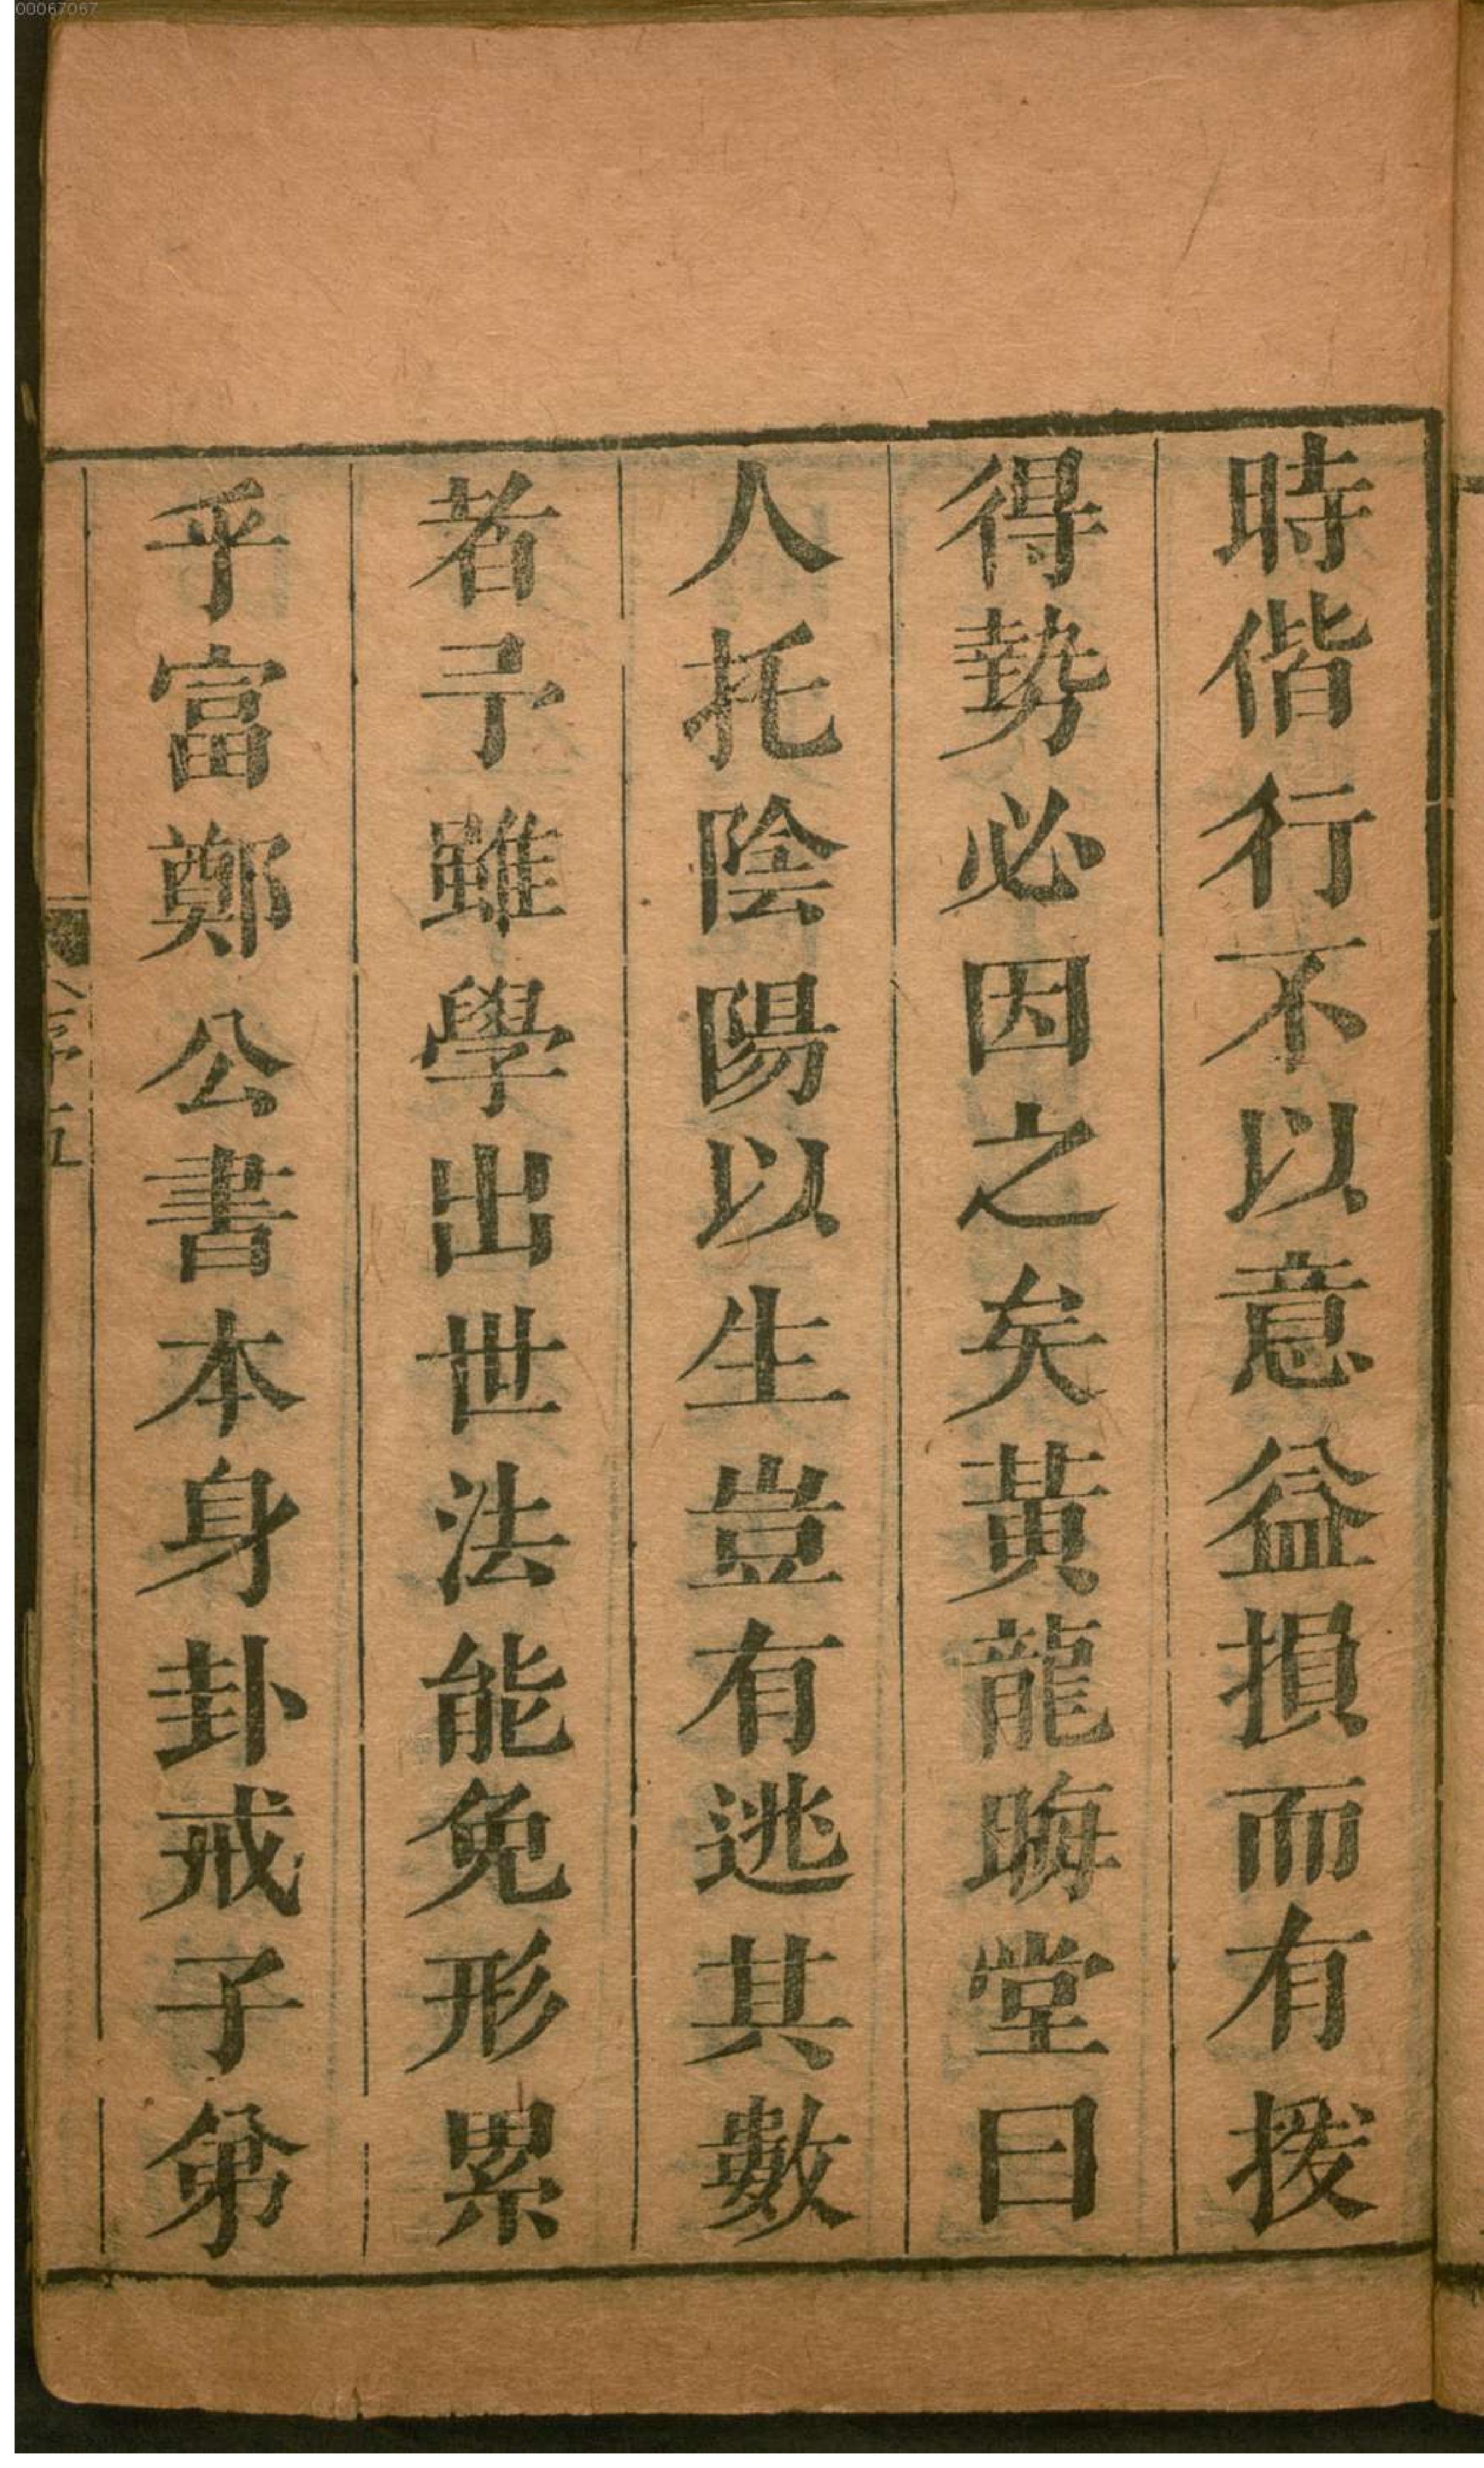 00067067
時偕行不以意益損而有援
得勢必因之矣黃龍晦堂曰
人托陰陽以生豈有逃其數
者予雖學出世法能免形累
乎富鄭公書本身卦戒子弟
序五